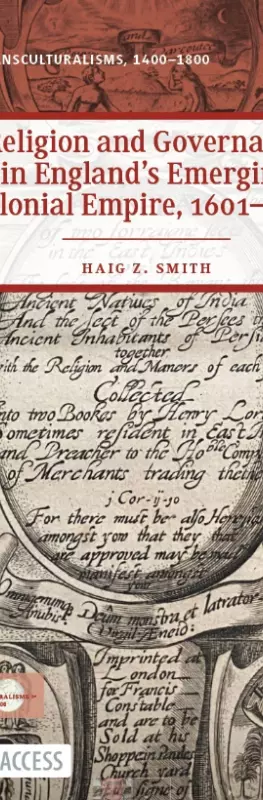 NSCULTURALISMS, 1400–1800
eligion and Governa
in England's Emergin
lonial Empire, 1601–
HAIG Z. SMITH
of two forraigne sects
in the East Indies
Ancient Natives of India
And the sect of the Persees th
Ancient Inhabitants of Persi
together
with the Religion and Maners of each
Collected
nto two Bookes by Henry Lor
ometimes resident in East I
and Preacher to the Hoble Comp
of Merchants trading theth
1 Cor-11-19
For there must be also Heresies
amongst you that they that
are approved may be made
manifest amongst
you
Omnigenumq Deum monstra et latrator
Anubis. Virgil Æneid:
Imprinted at
London
for Francis
Constable
and are to be
Sold at his
Shoppe in Paules
Church yard
at the signe of
RALISMS
ACCESS